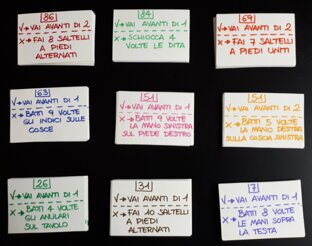 86
√→ VAI AVANTI DI 2
X→ FAI 8 SALTELLI
A PIEDI
ALTERNATI
84
√→ VAI AVANTI DI 1
X→ SCHIOCCA 4
VOLTE LE DITA
69
√→ VAI AVANTI DI 2
X→ FAI 7 SALTELLI
A PIEDI UNITI
63
√→ VAI AVANTI DI 1
X→ BATTI 9 VOLTE
GLI INDICI SULLE
COSCE
51
√→ VAI AVANTI DI 1
X→ BATTI 9 VOLTE
LA MANO SINISTRA
SUL PIEDE DESTRO
51
√→ VAI AVANTI DI 2
X→ BATTI 5 VOLTE
LA MANO DESTRA
SULLA COSCIA SINISTRA
26
√→ VAI AVANTI DI 1
X→ BATTI 4 VOLTE
GLI ANULARI
SUL TAVOLO
31
√→ VAI AVANTI DI 1
X→ FAI 10 SALTELLI
A PIEDI
ALTERNATI
7
√→ VAI AVANTI DI 1
X→ BATTI 8 VOLTE
LE MANI SOPRA
LA TESTA